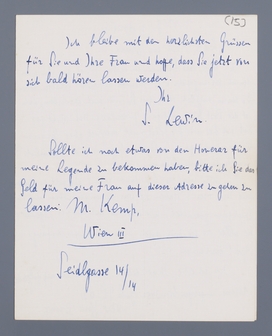 (15)
Ich bleibe mit den herzlichsten Grüssen
für Sie und Ihre Frau und hoffe, dass Sie jetzt von
sich bald hören lassen werden.
Ihr
S. Lewin
Sollte ich noch etwas von den Honorar für
meine Legende zu bekommen haben, bitte ich Sie das
Geld für meine Frau auf dieser Adresse zu gehen zu
lassen: M. Kemp,
Wien III
Seidlgasse 14/
14